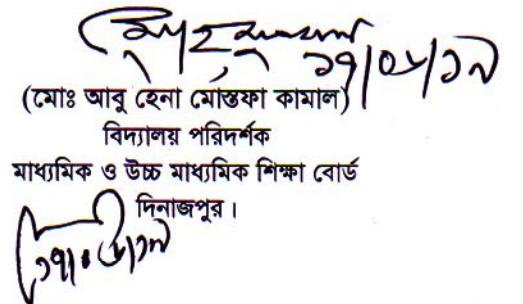 (মোঃ আবু হেনা মোস্তফা কামাল)
বিদ্যালয় পরিদর্শক
মাধ্যমিক ও উচ্চ মাধ্যমিক শিক্ষা বোর্ড
দিনাজপুর।